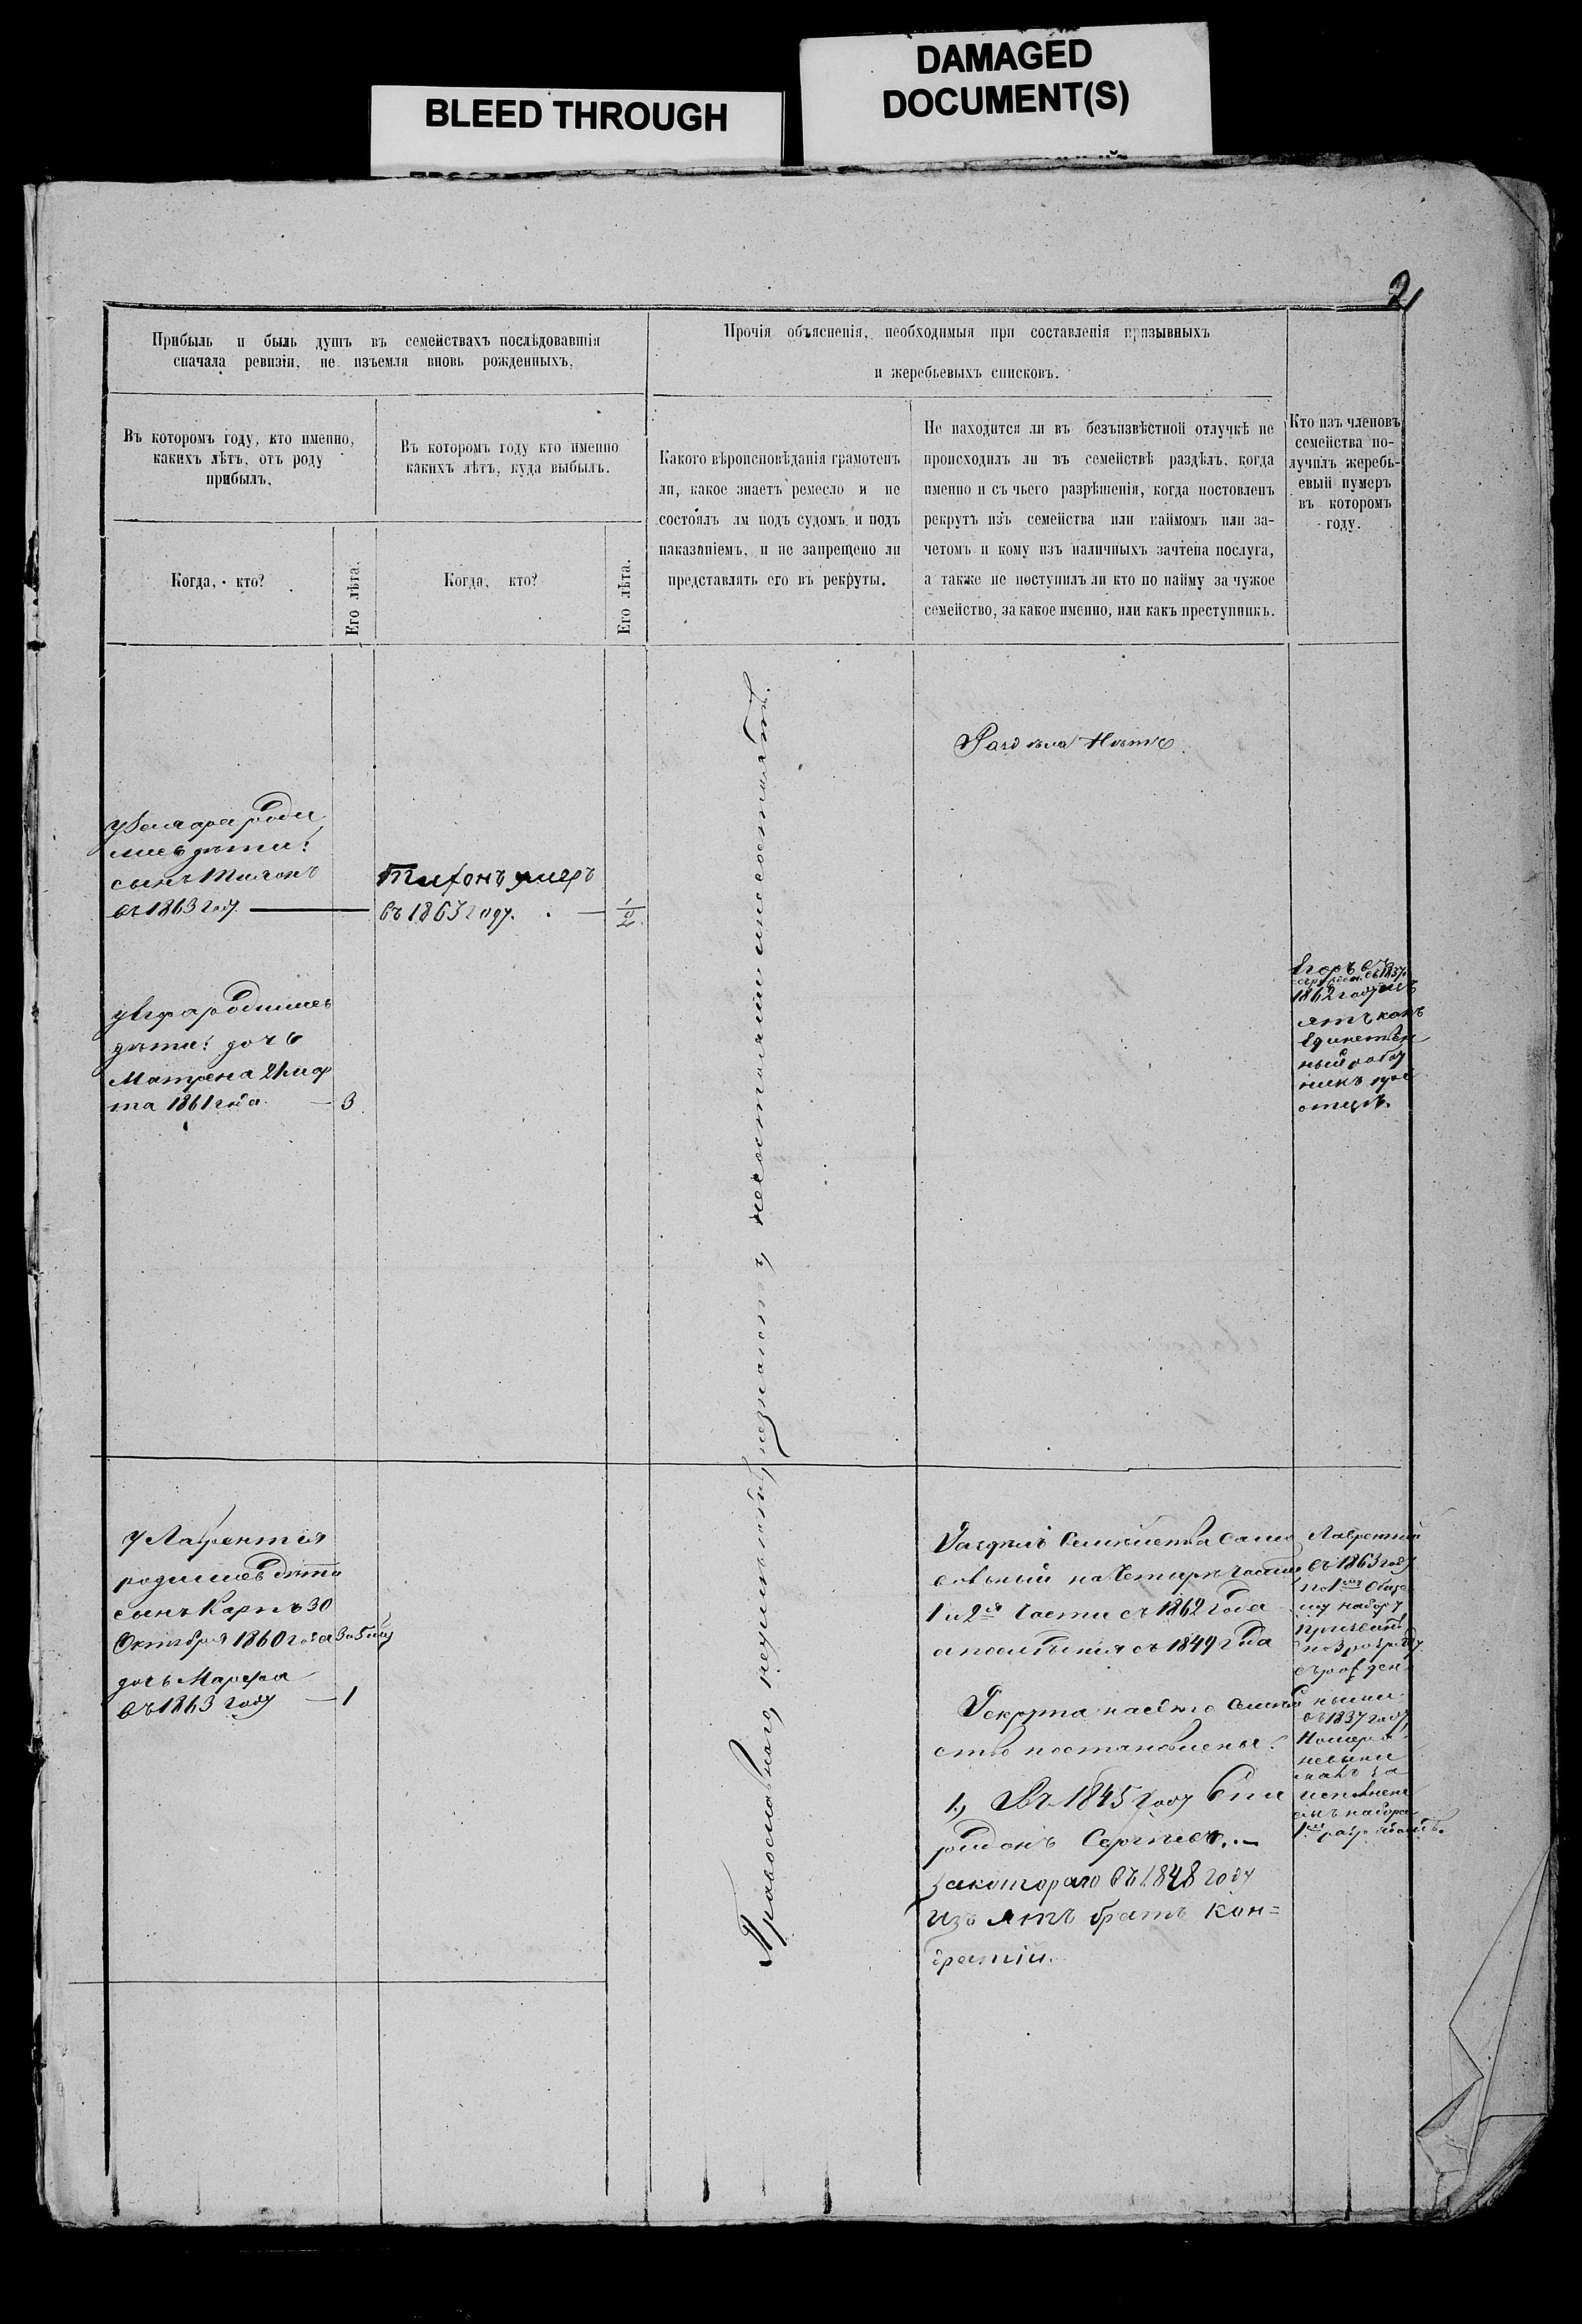 BLEED THROUGH
DAMAGED
DOCUMENT(S)
2
Прибыль и быль душъ въ семействахъ послѣдовавшія
сначала ревизіи, не изъемля вновь рожденныхъ.
Прочія объясненія, необходимыя при составленія призывныхъ
и жеребьевыхъ списковъ.
Въ которомъ году, кто именно,
какихъ лѣтъ, отъ роду
прибылъ.
Въ которомъ году кто именно
какихъ лѣтъ, куда выбылъ.
Какого вѣроисповѣданія грамотенъ
ли, какое знаетъ ремесло и не
состоялъ ли подъ судомъ и подъ
наказаніемъ, и не запрещено ли
представлять его въ рекруты.
Не находится ли въ безъизвѣстной отлучкѣ не
происходилъ ли въ семействѣ раздѣлъ, когда
именно и съ чьего разрѣшенія, когда постовленъ
рекрутъ изъ семейства или наймомъ или за-
четомъ и кому изъ наличныхъ зачтена послуга,
а также не поступилъ ли кто по найму за чужое
семейство, за какое именно, или какъ преступникъ.
Кто изъ членовъ
семейства по-
лучилъ жеребь-
евый нумеръ
въ которомъ
году.
Когда, кто?
Его лѣта.
Когда, кто?
Его лѣта.
Раздѣла Нѣтъ.
роди
лись дѣти:
сынъ Тихонъ
въ 1863 году.
Тихонъ умеръ
въ 1863 году. 1/2
у Егора родились
дѣти: дочь
Матрена 21 мар
та 1861 года 3
Егоръ
1862 году изъ
ятъ какъ
Единствен
ный работ
никъ при
отцѣ.
Православнаго, неграмотны, незнают, несостояли и несостоятъ.
У Лаврентія
родились дѣти
сынъ Карпъ 30
Октября 1860 года 3 и 5 мѣ
дочь Марфа
въ 1863 году 1
Раздѣлъ Семейства само
вольный на Четыри части
1 и 2я Части съ 1862 года
а послѣдния съ 1849 года
Рекрута насѣмъ семей
ствѣ постановлены:
1, Въ 1845 году Спи
ридонъ Сергѣевъ.
за котораго въ 1848 году
Изъ ятъ братъ Кон=
дратій.
Лаврентій
въ 1863 году
по 1му Обще
му набору
по 3 розряду
съ рожден
ными
въ 1837 году
Номера
невыни
малъ за
исполнені
емъ набора
1мъ розрядомъ.